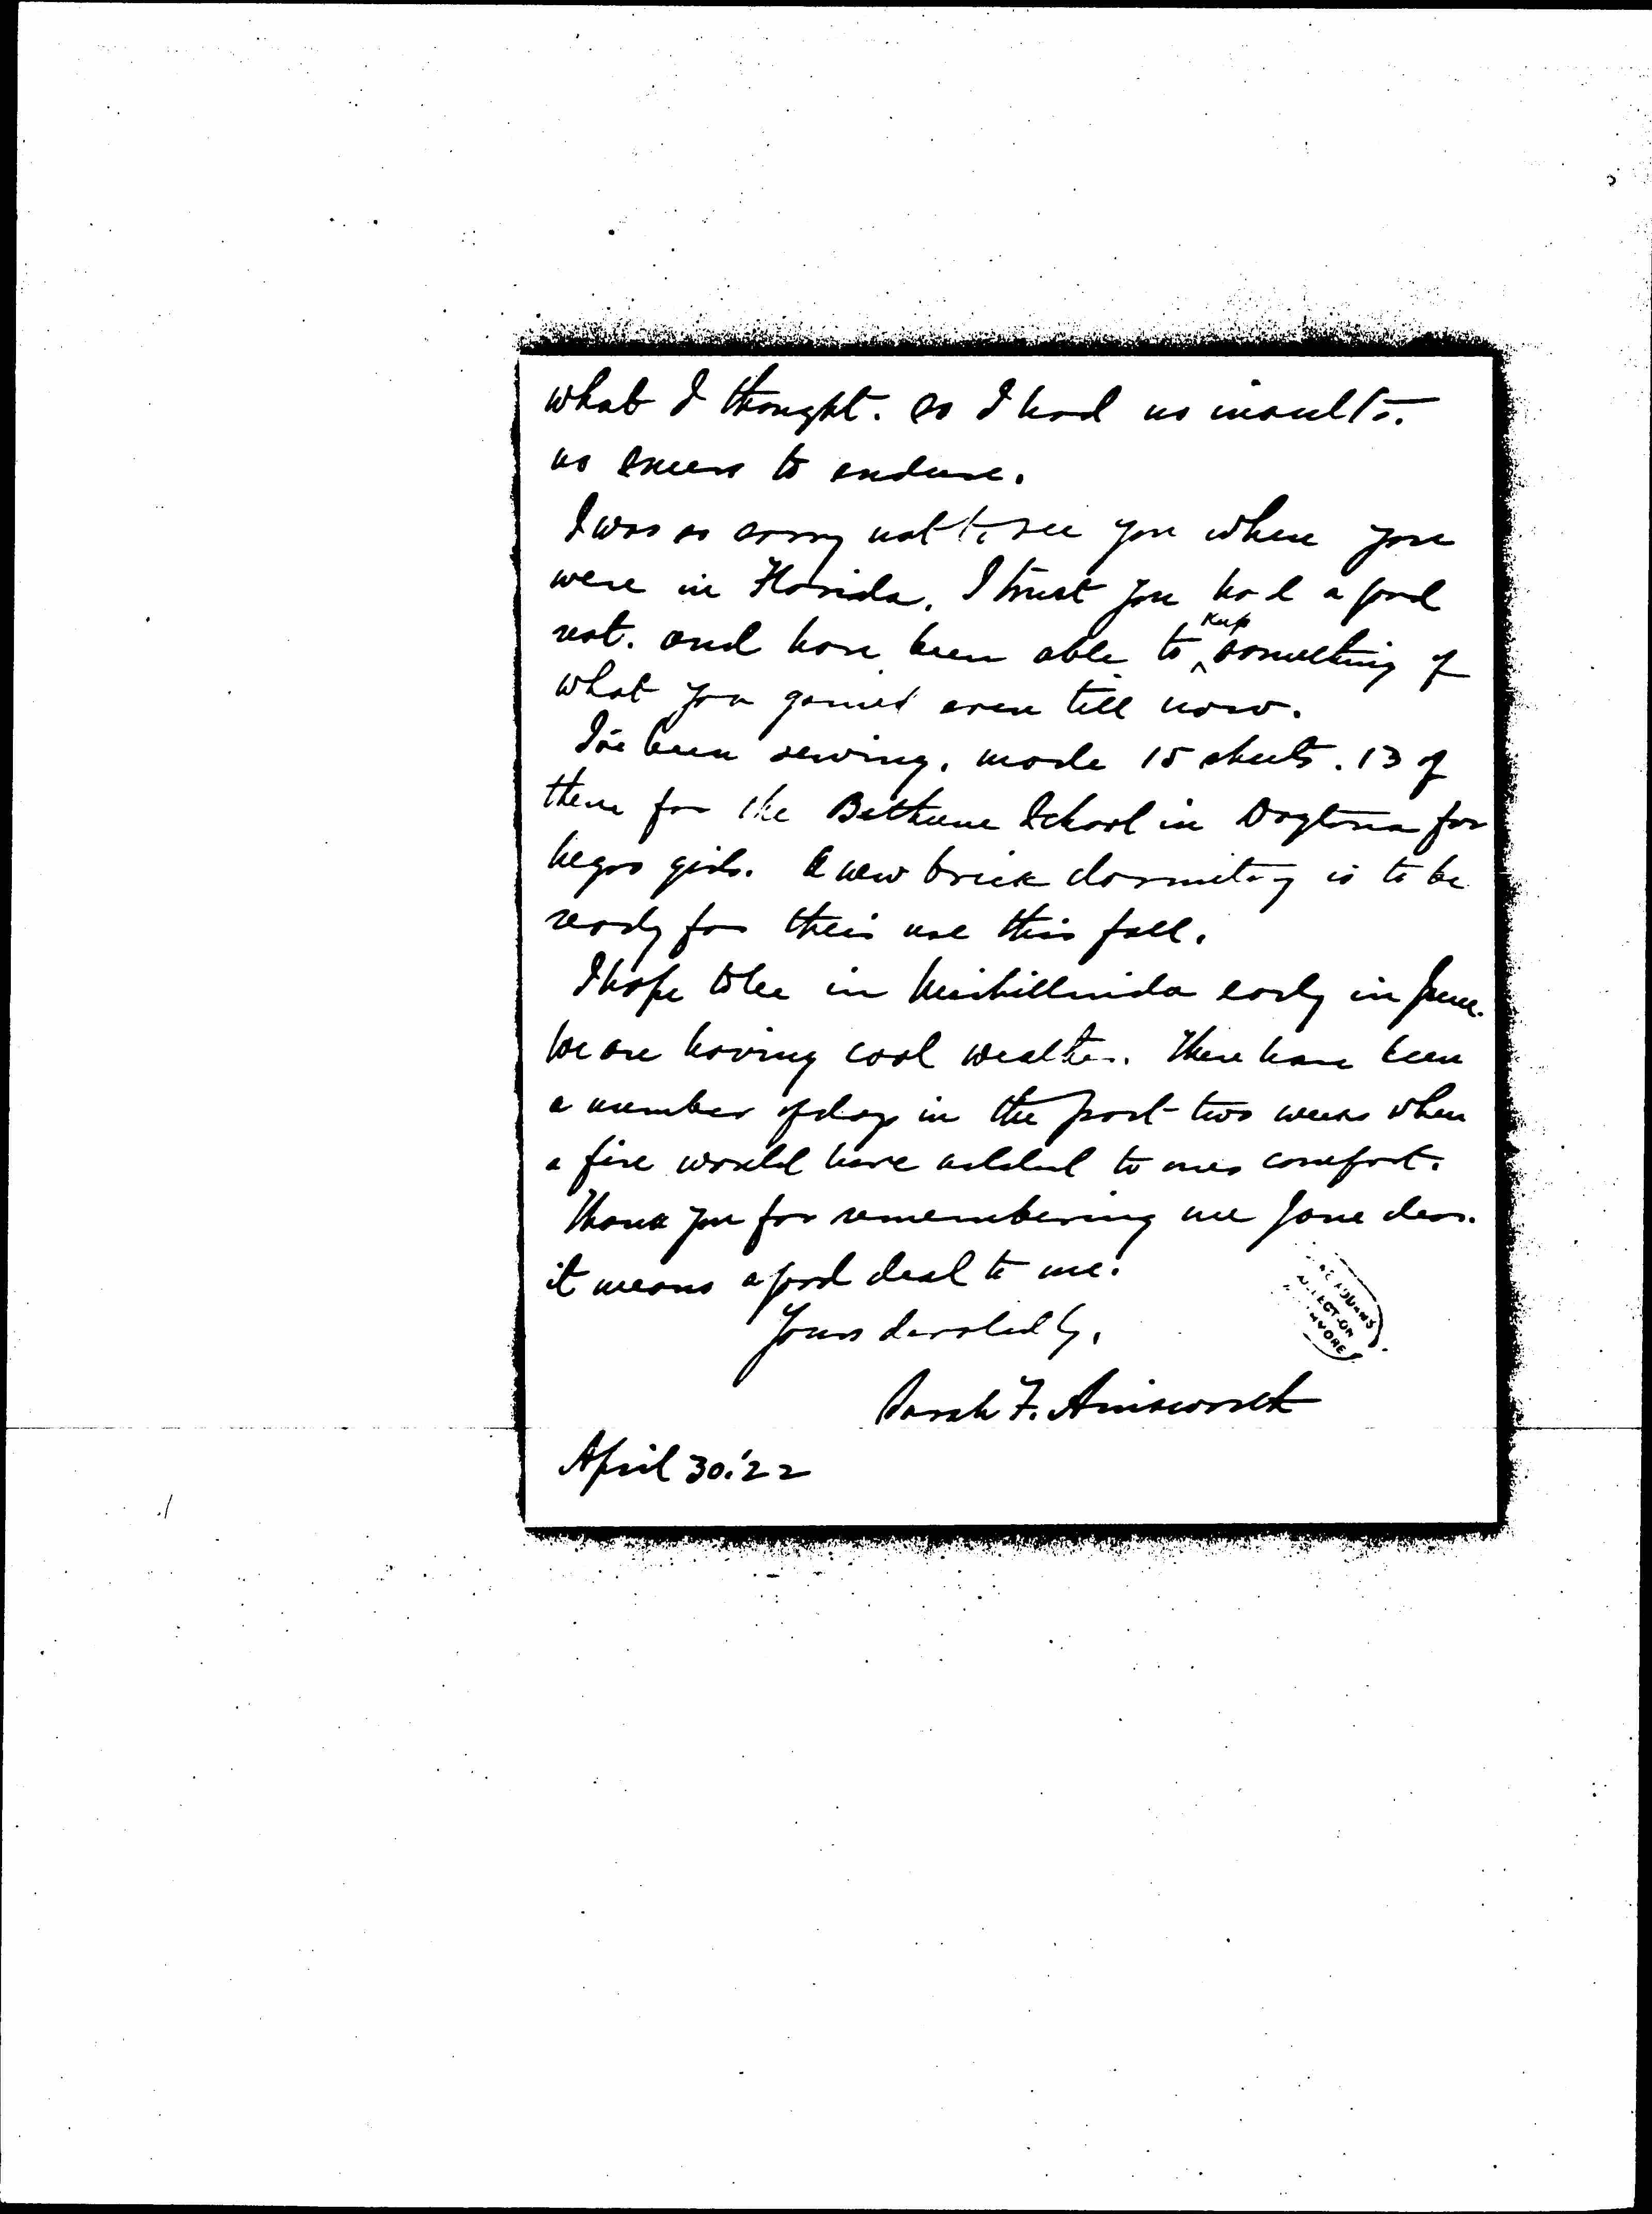 what I thought. so I had no insults.
no sneers to endure.
I was so sorry not to see you when you
were in Florida. I trust you had a good
rest. and have been able to keep something of
what you gained even till now.
I've been sewing. made 15 sheets. 13 of
them for the Bethune School in Daytona for
negro girls. A new brick dormitory is to be
ready for their use this fall.
I hope to be in Mishillinda early in June.
We are having cool weather. There have been
a number of days in the past two weeks when
a fire would have added to ones comfort.
Thank you for remembering me Jane dear.
it means a good deal to me.
Yours devotedly,
Sarah F. Ainsworth
April 30.'22
ADDAMS